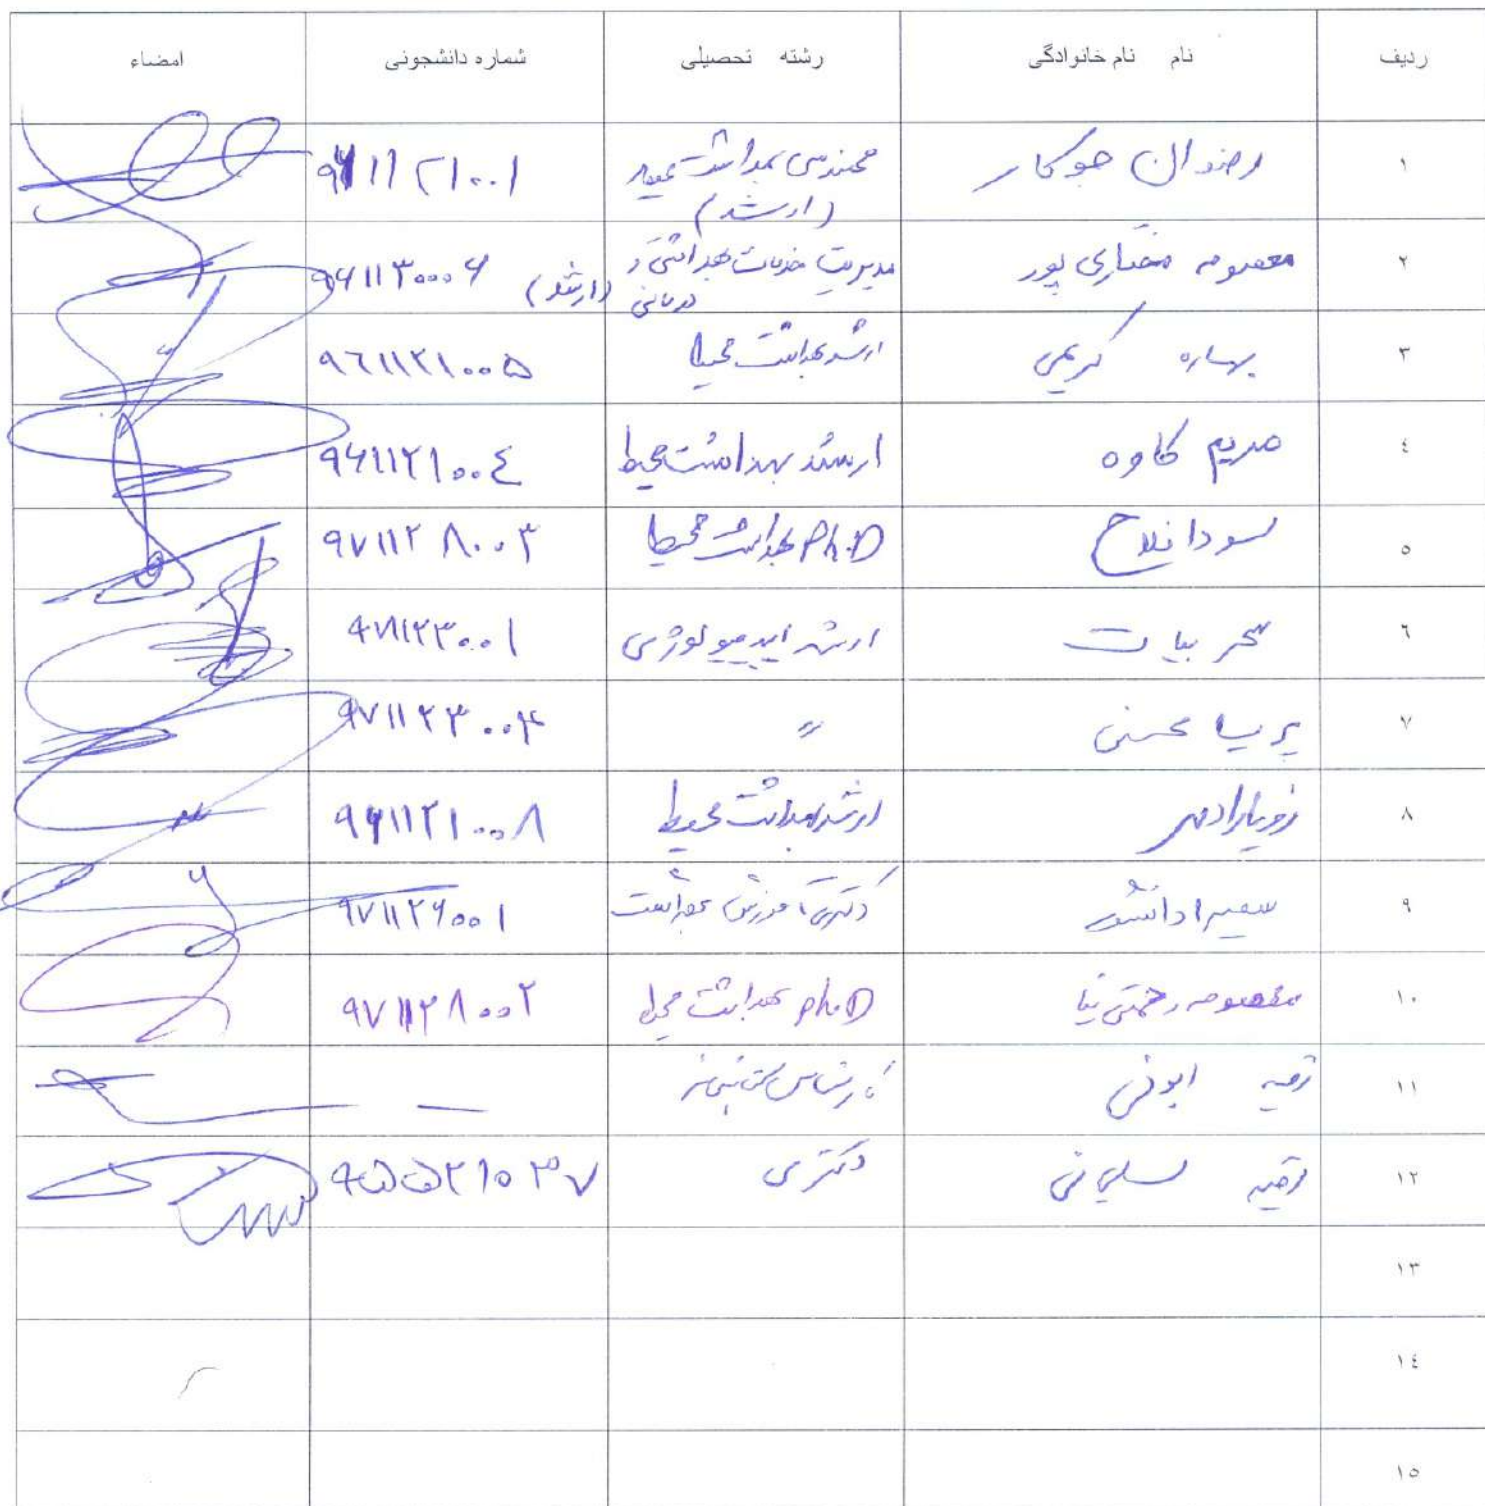 ردیف نام نام خانوادگی رشته تحصیلی شماره دانشجونی امضاء
۱ رضوان جوکار مهندسی بهداشت محیط ۹۶۱۱۲۱۰۰۱
(ارشد)
۲ معصومه مختاری پور مدیریت خدمات بهداشتی و ۹۶۱۱۳۰۰۰۶
درمانی (ارشد)
۳ بهاره کریمی ارشد بهداشت محیط ۹۶۱۱۲۱۰۰۵
٤ مریم کاوه ارشد بهداشت محیط ۹۶۱۱۲۱۰۰٤
۵ سودا فلاح Ph.D بهداشت محیط ۹۷۱۱۲۸۰۰۳
٦ سحر بیات ارشد اپیدمیولوژی ۹۷۱۱۲۳۰۰۱
۷ پریسا محسنی " ۹۷۱۱۲۳۰۰۴
۸ ارشد بهداشت محیط ۹۶۱۱۲۱۰۰۸
۹ سمیرا دانشور دکتری آموزش بهداشت ۹۷۱۱۲۶۰۰۱
۱۰ معصومه رحمتی نیا Ph.D بهداشت محیط ۹۷۱۱۲۸۰۰۲
۱۱ رقیه کارشناس —
۱۲ رقیه سلیمانی دکتری ۹۵۵۲۱۰۳۷
۱۳
۱٤
۱۵